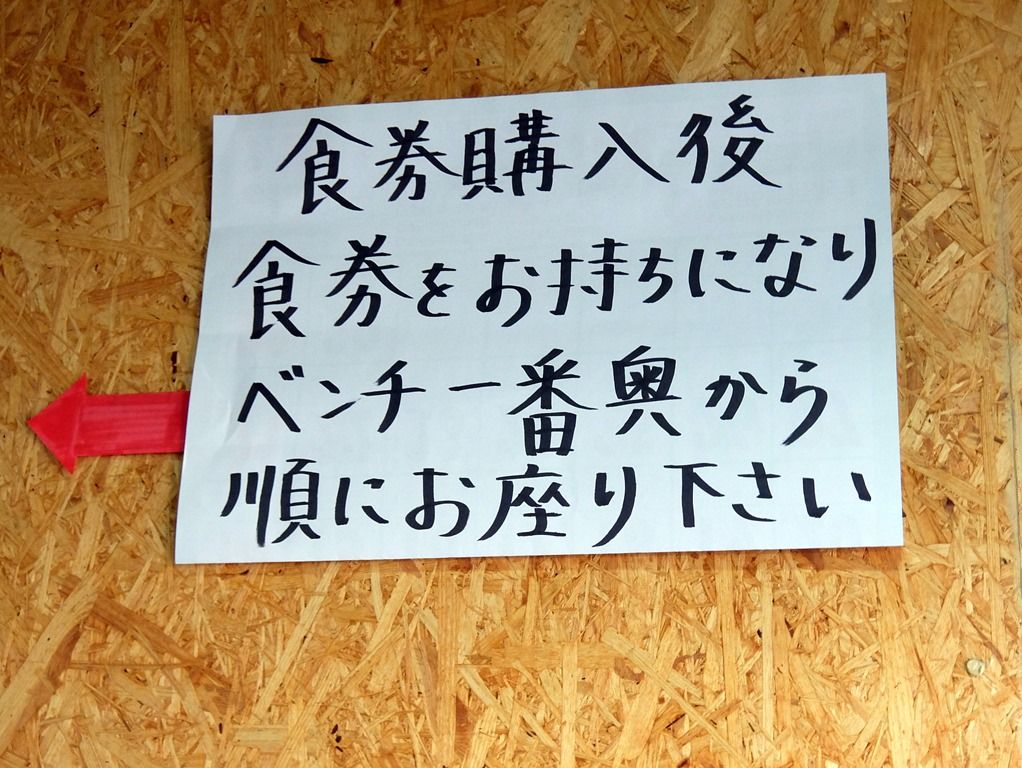 食券購入後
食券をお持ちになり
ベンチ一番奥から
順にお座り下さい